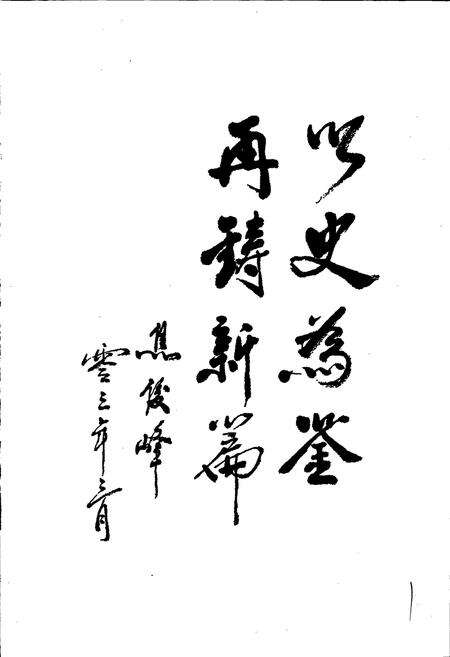 以史為鉴
再鑄新篇
焦俊峰
零三年三月